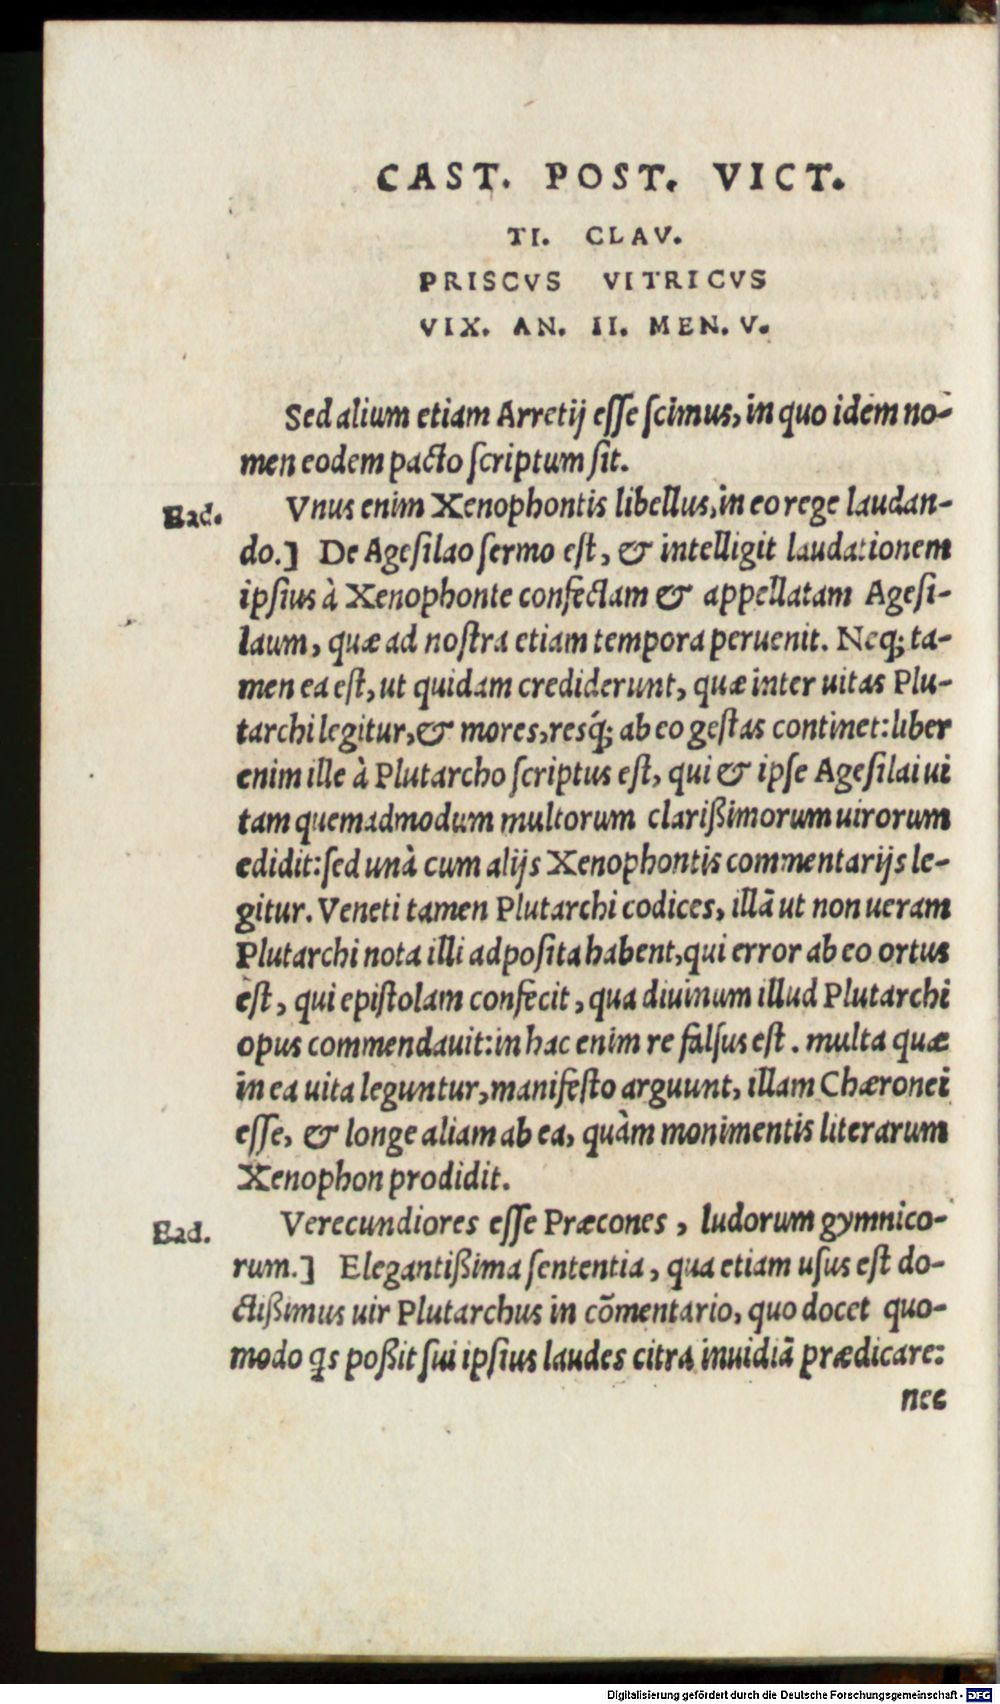 CAST. POST. VICT.
TI. CLAV.
PRISCVS VITRICVS
VIX. AN. II. MEN. V.
Sed alium etiam Arretij eſſe ſcimus, in quo idem no-
men eodem pacto ſcriptum ſit.
Ead. Vnus enim Xenophontis libellus, in eo rege laudan-
do.] De Ageſilao ſermo eſt, & intelligit laudationem
ipſius à Xenophonte confectam & appellatam Ageſi-
laum, quæ ad noſtra etiam tempora peruenit. Neq; ta-
men ea eſt, ut quidam crediderunt, quæ inter uitas Plu-
tarchi legitur, & mores, resq́; ab eo geſtas continet: liber
enim ille à Plutarcho ſcriptus eſt, qui & ipſe Ageſilai ui
tam quemadmodum multorum clarißimorum uirorum
edidit: ſed unà cum alijs Xenophontis commentarijs le-
gitur. Veneti tamen Plutarchi codices, illā ut non ueram
Plutarchi nota illi adpoſita habent, qui error ab eo ortus
eſt, qui epiſtolam confecit, qua diuinum illud Plutarchi
opus commendauit: in hac enim re falſus eſt. multa quæ
in ea uita leguntur, manifeſto arguunt, illam Chæronei
eſſe, & longe aliam ab ea, quàm monimentis literarum
Xenophon prodidit.
Ead. Verecundiores eſſe Præcones, ludorum gymnico-
rum.] Elegantißima ſententia, qua etiam uſus eſt do-
ctißimus uir Plutarchus in cōmentario, quo docet quo-
modo qs poßit ſui ipſius laudes citra inuidiā prædicare:
nec
Digitalisierung gefördert durch die Deutsche Forschungsgemeinschaft - DFG